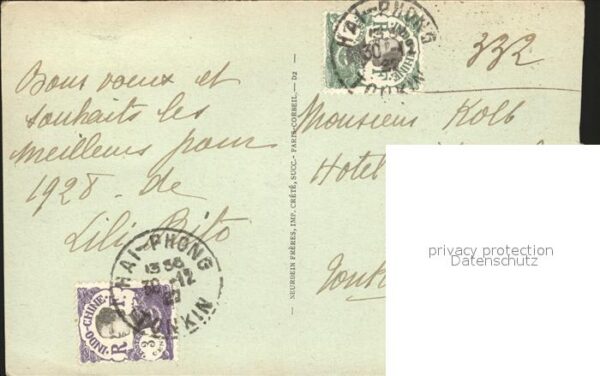 Bons voeux et
souhaits les
meilleurs pour
1928 de
Lili
HAI-PHONG
13 30
30-12
27
TONKIN
INDO-CHINE
R F
3
NEURDEIN FRÈRES, IMP. CRÉTÉ, SUCC. - PARIS-CORBEIL - D2
HAI-PHONG
30-12
TONKIN
332
Monsieur Kolb
Hotel
privacy protection
Datenschutz